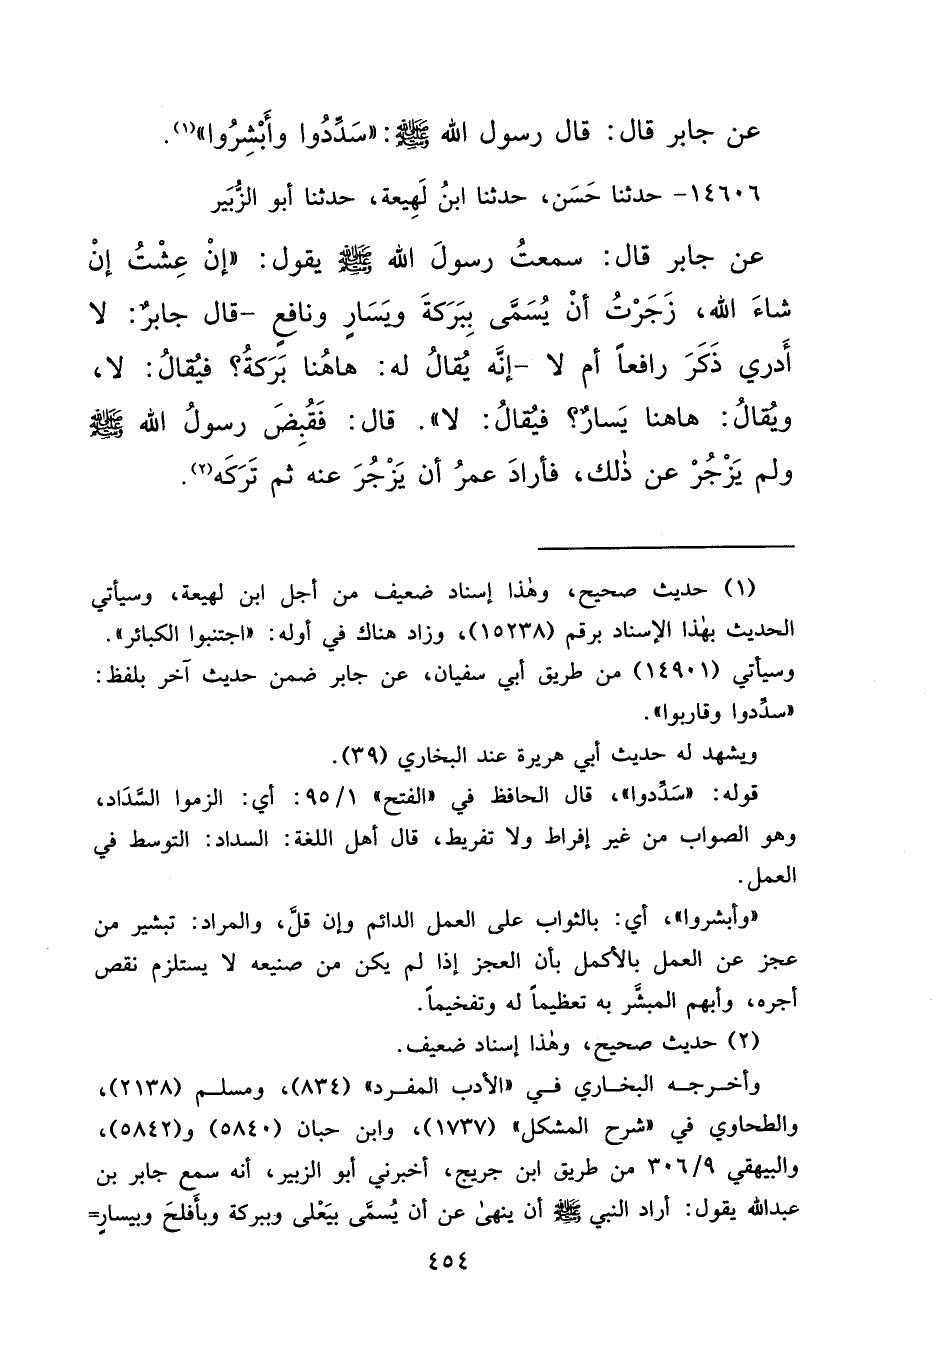 عن جابر قال: قال رسول الله ﷺ: «سَدِّدُوا وأَبْشِرُوا»(١).
١٤٦٠٦- حدثنا حَسَن، حدثنا ابنُ لَهِيعة، حدثنا أبو الزُّبَير
عن جابر قال: سمعتُ رسولَ الله ﷺ يقول: «إنْ عِشْتُ إنْ
شاءَ الله، زَجَرْتُ أنْ يُسَمَّى بِبَرَكةَ ويَسَارٍ ونافعٍ -قال جابرٌ: لا
أَدري ذَكَرَ رافعاً أم لا -إنَّه يُقالُ له: هاهُنا بَرَكةُ؟ فيُقالُ: لا،
ويُقالُ: هاهنا يَسارٌ؟ فيُقالُ: لا». قال: فَقُبِضَ رسولُ الله ﷺ
ولم يَزْجُرْ عن ذٰلك، فأرادَ عمرُ أن يَزْجُرَ عنه ثم تَرَكَه(٢).
(١) حديث صحيح، وهٰذا إسناد ضعيف من أجل ابن لهيعة، وسيأتي
الحديث بهٰذا الإسناد برقم (١٥٢٣٨)، وزاد هناك في أوله: «اجتنبوا الكبائر».
وسيأتي (١٤٩٠١) من طريق أبي سفيان، عن جابر ضمن حديث آخر بلفظ:
«سدِّدوا وقاربوا».
ويشهد له حديث أبي هريرة عند البخاري (٣٩).
قوله: «سَدِّدوا»، قال الحافظ في «الفتح» ٩٥/١: أي: الزموا السَّدَاد،
وهو الصواب من غير إفراط ولا تفريط، قال أهل اللغة: السداد: التوسط في
العمل.
«وأبشروا»، أي: بالثواب على العمل الدائم وإن قلَّ، والمراد: تبشير من
عجز عن العمل بالأكمل بأن العجز إذا لم يكن من صنيعه لا يستلزم نقص
أجره، وأبهم المبشَّر به تعظيماً له وتفخيماً.
(٢) حديث صحيح، وهٰذا إسناد ضعيف.
وأخرجه البخاري في «الأدب المفرد» (٨٣٤)، ومسلم (٢١٣٨)،
والطحاوي في «شرح المشكل» (١٧٣٧)، وابن حبان (٥٨٤٠) و(٥٨٤٢)،
والبيهقي ٣٠٦/٩ من طريق ابن جريج، أخبرني أبو الزبير، أنه سمع جابر بن
عبدالله يقول: أراد النبي ﷺ أن ينهىٰ عن أن يُسمَّى بيَعْلى وببركة وبأَفلحَ وبيسارٍ=
٤٥٤